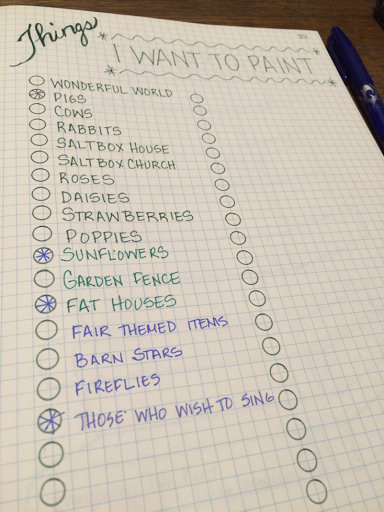 Things
I WANT TO PAINT
WONDERFUL WORLD
PIGS
COWS
RABBITS
SALTBOX HOUSE
SALTBOX CHURCH
ROSES
DAISIES
STRAWBERRIES
POPPIES
SUNFLOWERS
GARDEN FENCE
FAT HOUSES
FAIR THEMED ITEMS
BARN STARS
FIREFLIES
THOSE WHO WISH TO SING